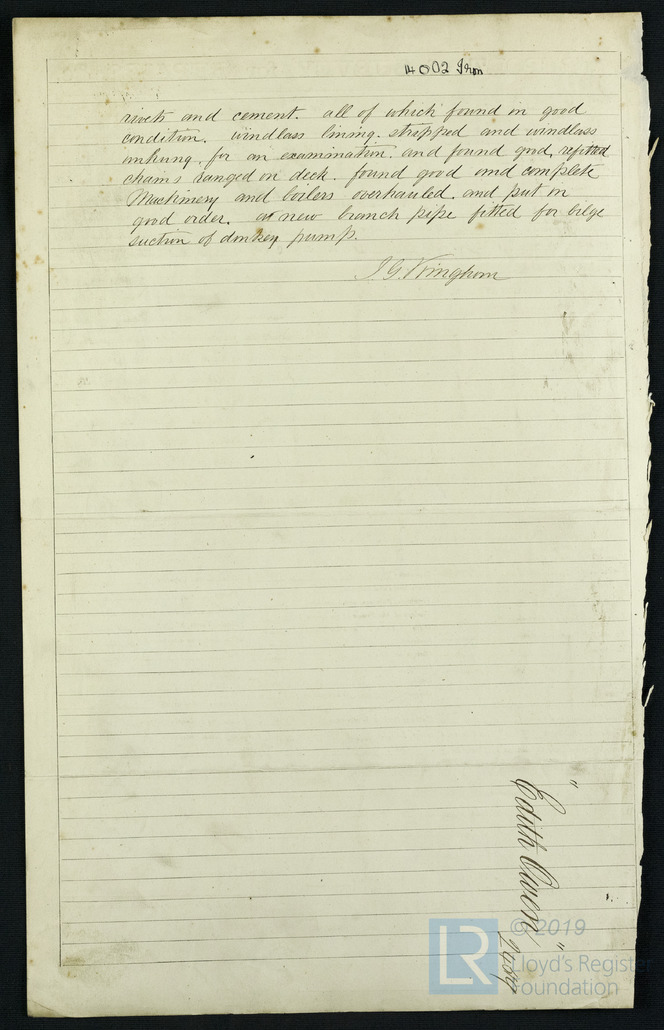 14002 Iron
rivets and cement. all of which found in good
condition. windlass lining. stripped and windlass
unhung, for an examination. and found good, refitted
chains ranged on deck. found good and complete
Machinery and boilers overhauled. and put in
good order. a new branch pipe fitted for bilge
suction of donkey pump.
J.G. Kinghorn
"Edith Owen"
© 2019
Lloyd's Register
Foundation
LR